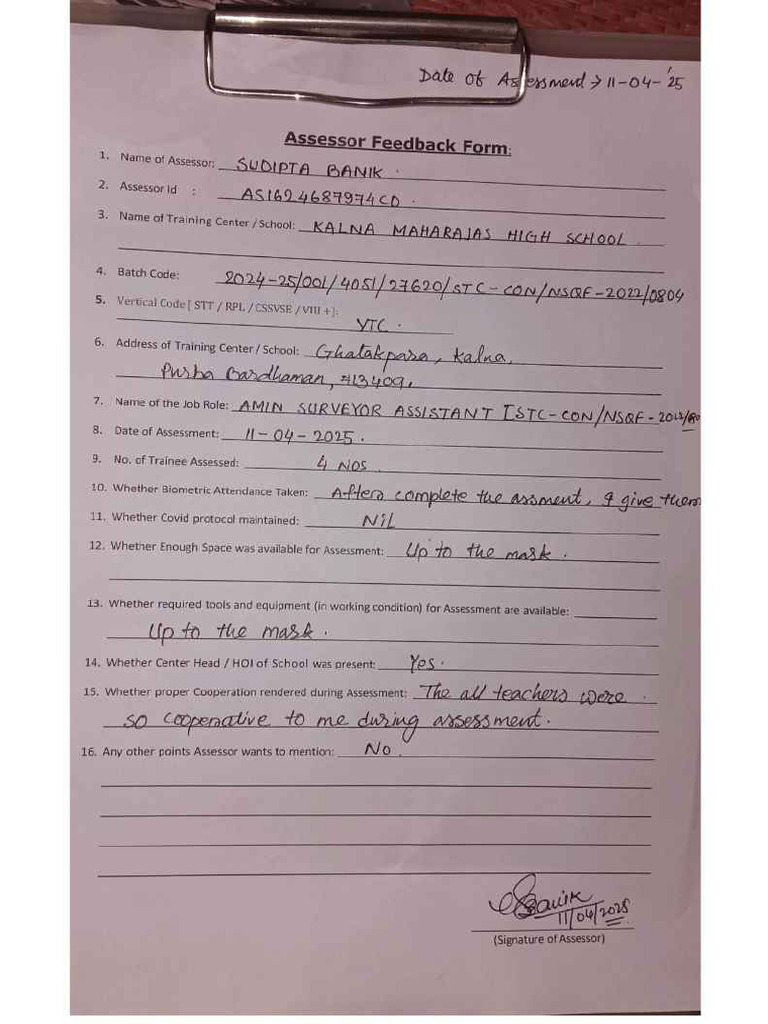 Date of Assessment → 11-04-'25
Assessor Feedback Form:
1. Name of Assessor: SUDIPTA BANIK.
2. Assessor Id : AS1624687974CD.
3. Name of Training Center / School: KALNA MAHARAJAS HIGH SCHOOL
4. Batch Code: 2024-25/001/4051/27620/STC-CON/NSQF-2022/0804
5. Vertical Code [ STT / RPL / CSSVSE / VIII +]:
VTC.
6. Address of Training Center / School: Ghatakpara, Kalna,
Purba Bardhaman, 713409,
7. Name of the Job Role: AMIN SURVEYOR ASSISTANT [STC-CON/NSQF-2022/
8. Date of Assessment: 11-04-2025.
9. No. of Trainee Assessed: 4 NOS.
10. Whether Biometric Attendance Taken: After complete the assment, I give them
11. Whether Covid protocol maintained: NiL
12. Whether Enough Space was available for Assessment: Up to the mask.
13. Whether required tools and equipment (in working condition) for Assessment are available:
Up to the mask.
14. Whether Center Head / HOI of School was present: Yes.
15. Whether proper Cooperation rendered during Assessment: The all teachers were.
so cooperative to me during assessment.
16. Any other points Assessor wants to mention: No.
SBanik
11/04/2025
(Signature of Assessor)